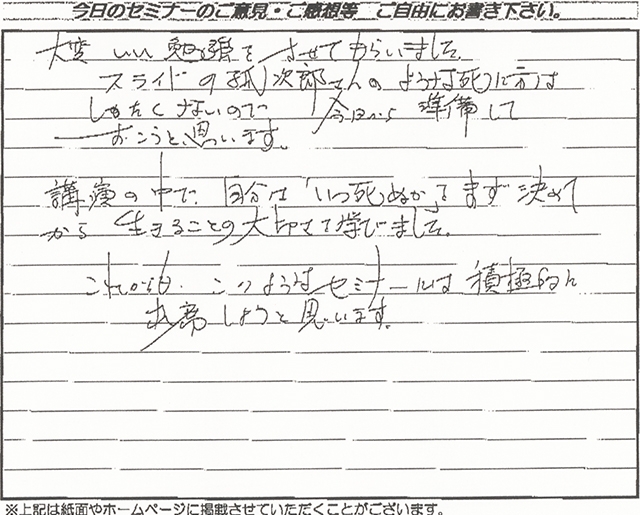 今日のセミナーのご意見・ご感想等 ご自由にお書き下さい。
大変いい勉強をさせてもらいました。
スライドの孤次郎さんのような死に方は
したくないので今日から準備して
おこうと思います。
講演の中で、自分は「いつ死ぬか」をまず決めて
から生きることの大切さを学びました。
これからも、このようなセミナーには積極的に
出席しようと思います。
※上記は紙面やホームページに掲載させていただくことがございます。